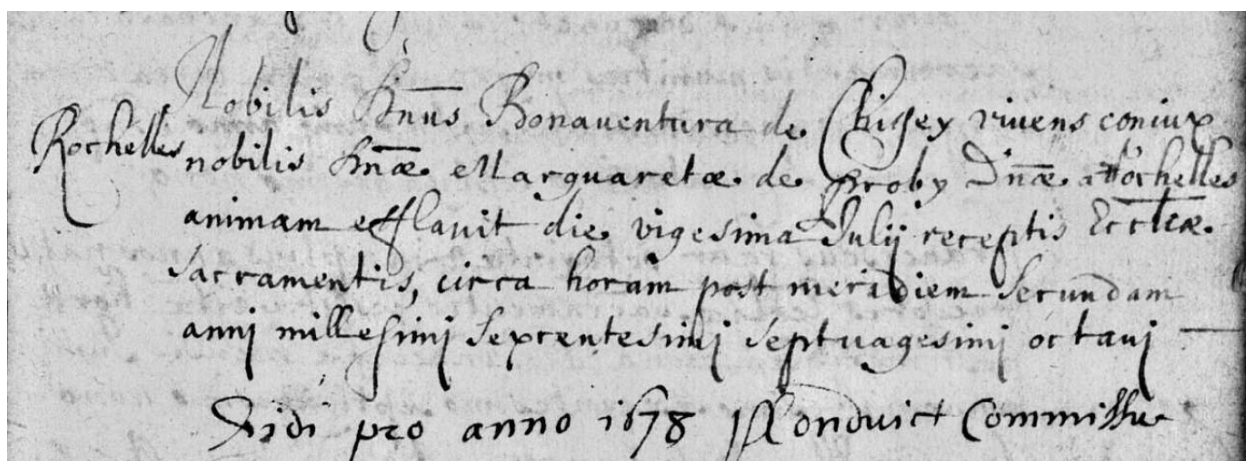 Nobilis Dnus Bonaventura de Chissey vivens coniux
Rochelles nobilis Dnæ Marguaretæ de Proby Dnæ a Rochelles
animam efflavit die vigesima Iulij receptis Eccleæ
sacramentis, circa horam post meridiem secundam
anni millesimi sexcentesimi septuagesimi octavi
Vidi pro anno 1678